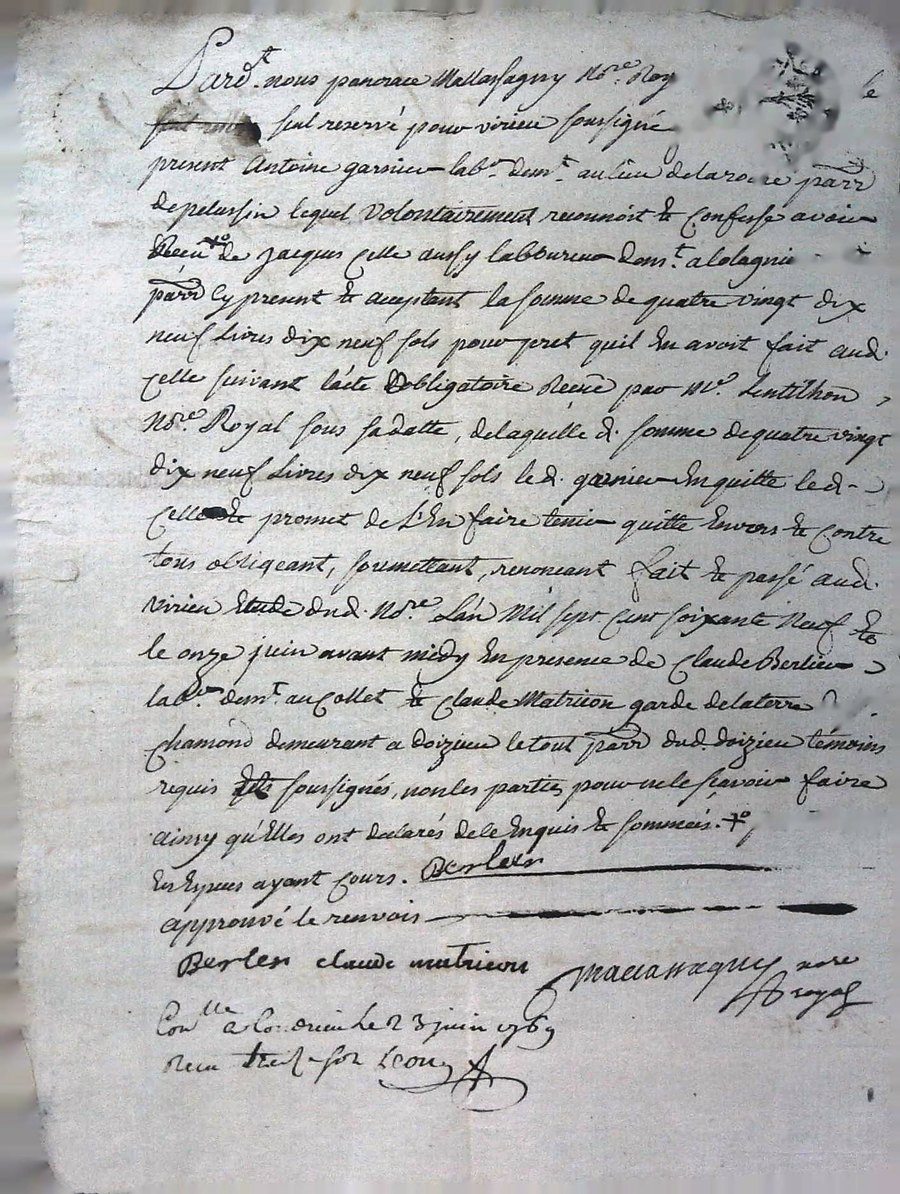 Pard.t nous pancrace Mallassagny No.re Roy
seul reservé pour virieu soussigné
present Antoine garnier lab.r dem.t au lieu de larocre parr
de pelussin lequel Volontairement reconnoit & Confesse avoir
Receu +o de Jacques Celle aussy laboureur dem.t alolagnie
parr Cy present & aceptant la somme de quatre vingt dix
neuf Livres dix neuf sols pour pret quil En avoit fait aud.
Celle suivant l'acte Obligatoire Receue par M.e Lentilhon
No.re Royal sous sa datte, de laquelle d. somme de quatre vingt
dix neuf Livres dix neuf sols le d. garnier En quitte le d.
Celle & promet de L'En faire tenir quitte Envers & Contre
tous obligeant, soumettant, renoncant fait & passé aud.
virieu Etude dud. No.re L'an Mil sept Cent soixante Neuf &
le onze juin avant midy En presence de Claude Berlier
lab.r dem.t au Collet & Claude Matricon garde de la terre
Chamond demeurant a doizieu le tout parr dud. doizieu témoins
requis soussignés, non les parties pour ne le scavoir faire
ainsy qu'Elles ont declarés de le Enquis & sommées. +o
En Especes ayant Cours. Berler
approuvé le renvois
Berler claude matricon
Mallassagny nore
royal
Con.lle a Condrieu le 23 juin 1769
Receu treize sols